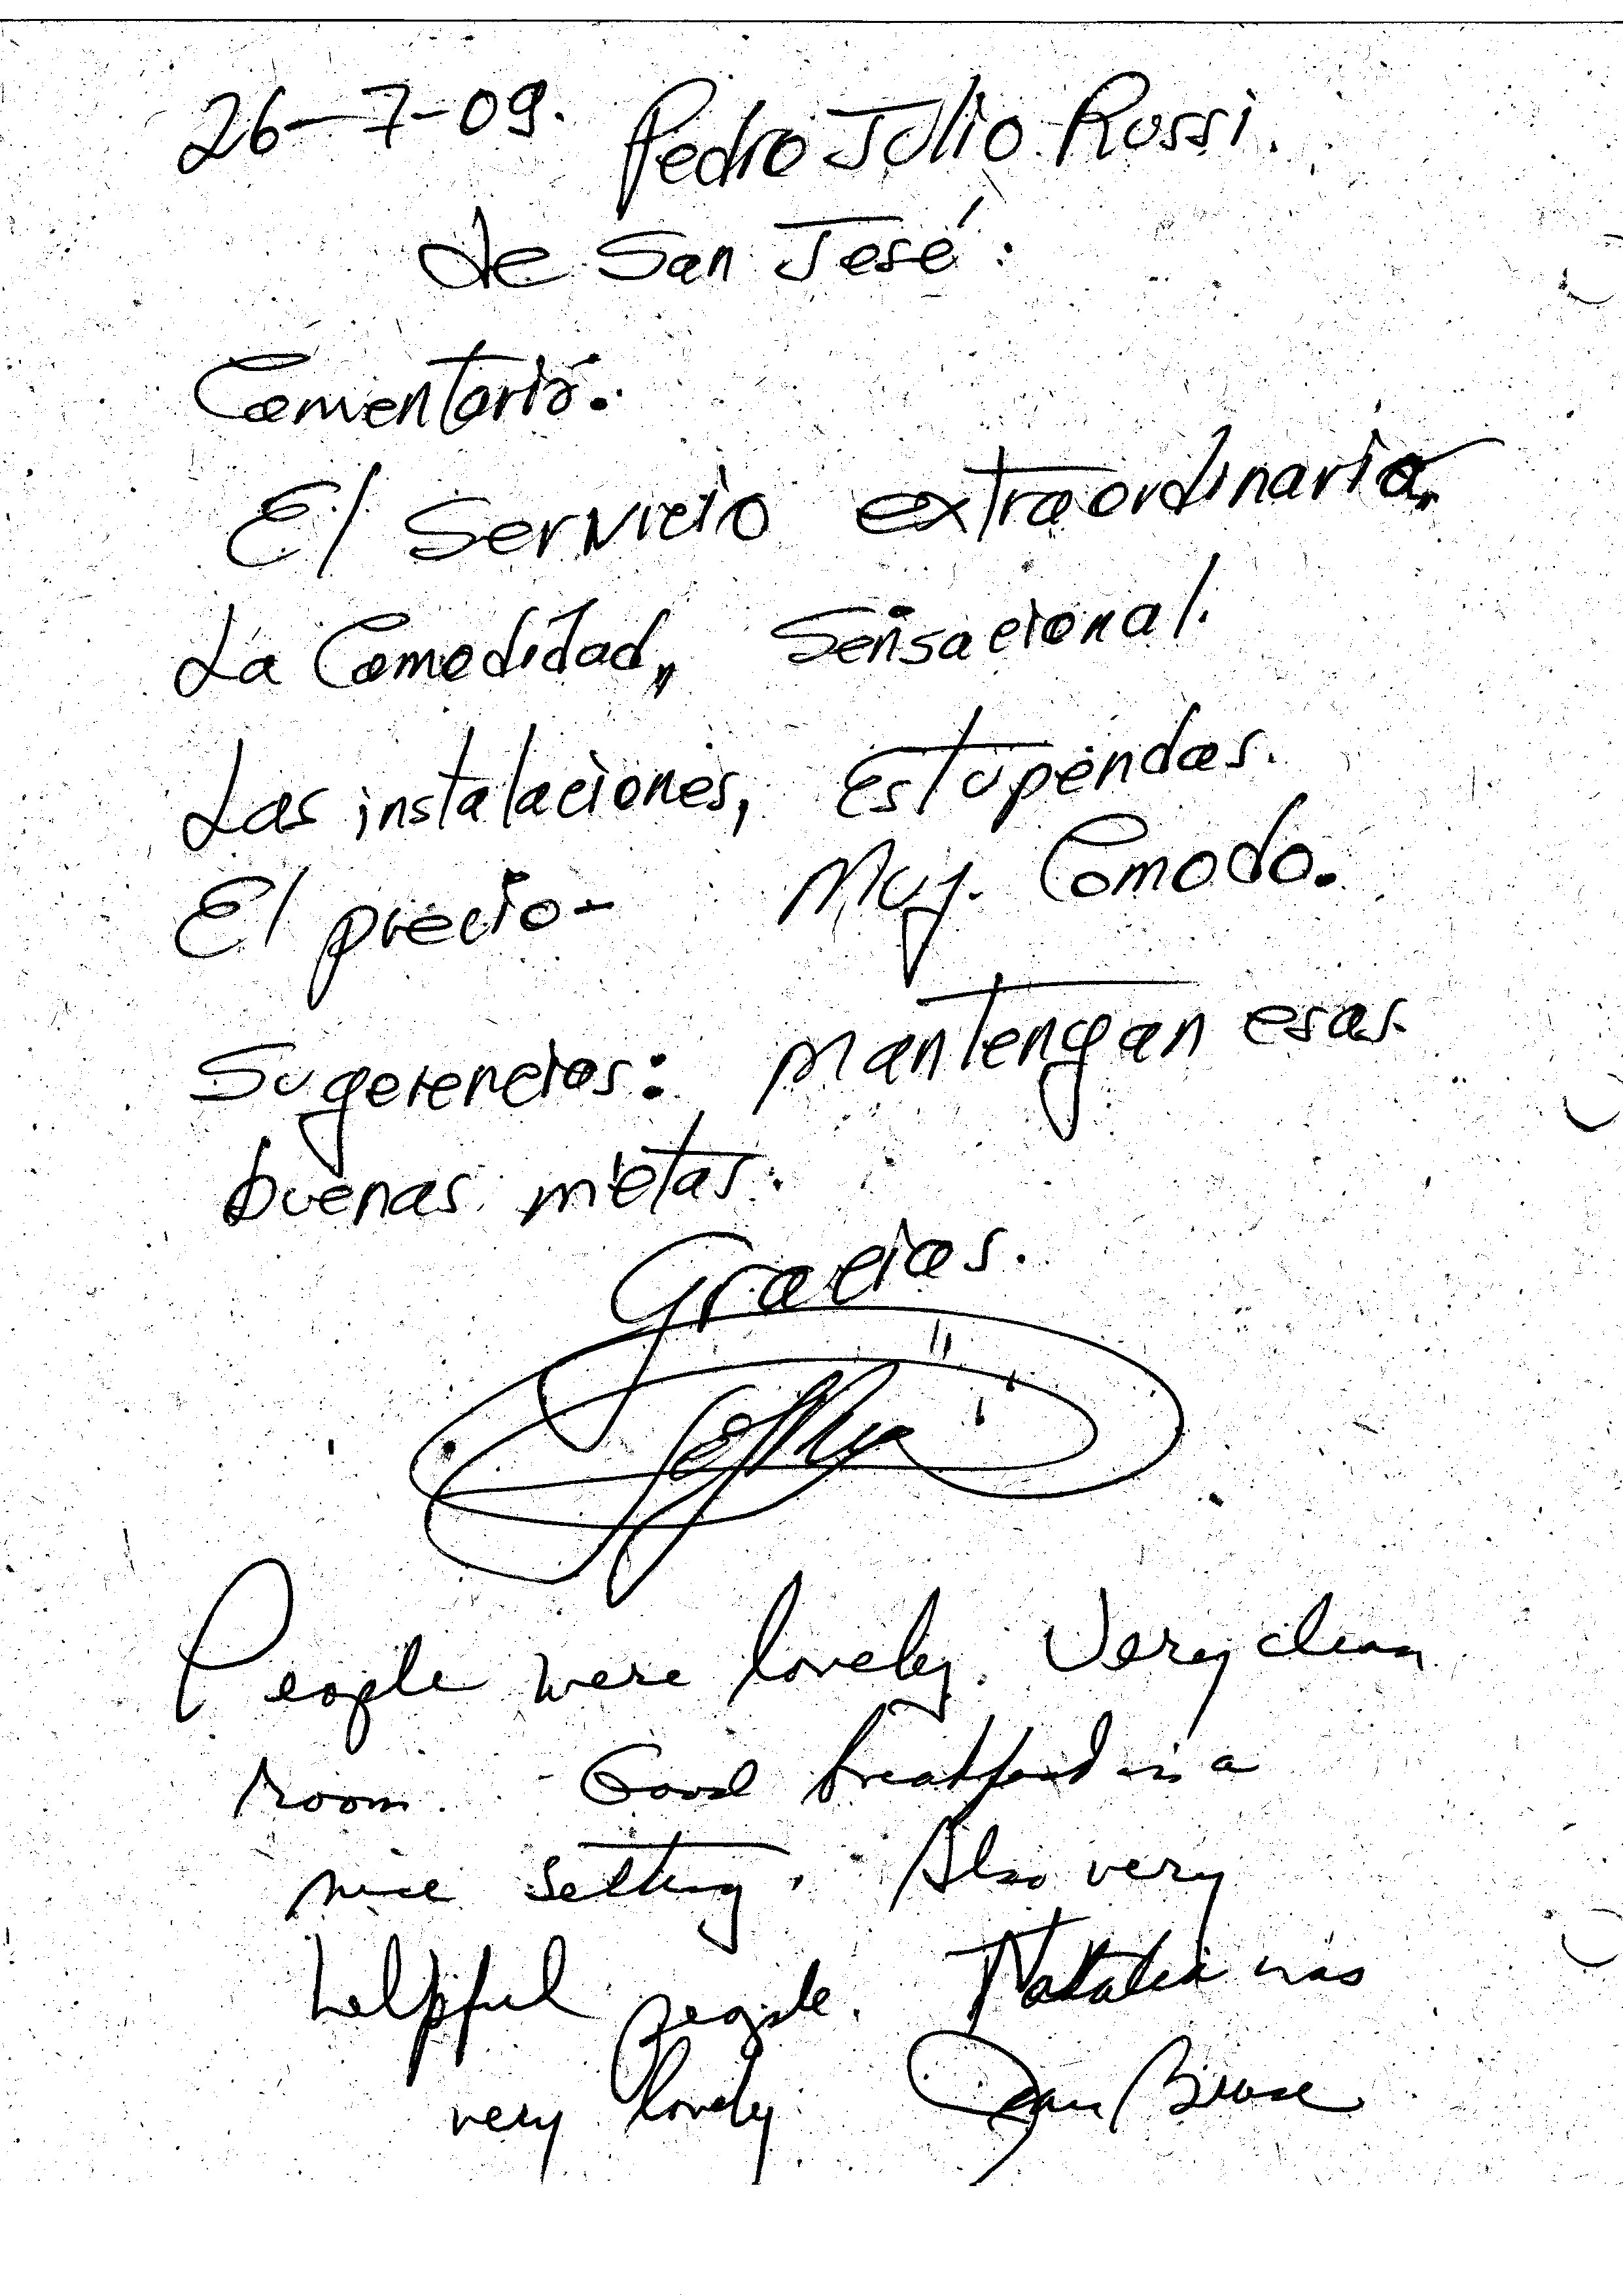 26-7-09. Pedro Julio Rossi.
de San José:
Comentario.
El Servicio extraordinario,
La Comodidad, Sensacional.
Las instalaciones, Estupendas.
El precio- Muy. Comodo.
Sugerencias: Mantengan esas
buenas metas.
Gracias.
People were lovely. Very clean
room. Good breakfast in a
nice setting. Also very
helpful people. Natalia was
very lovely.